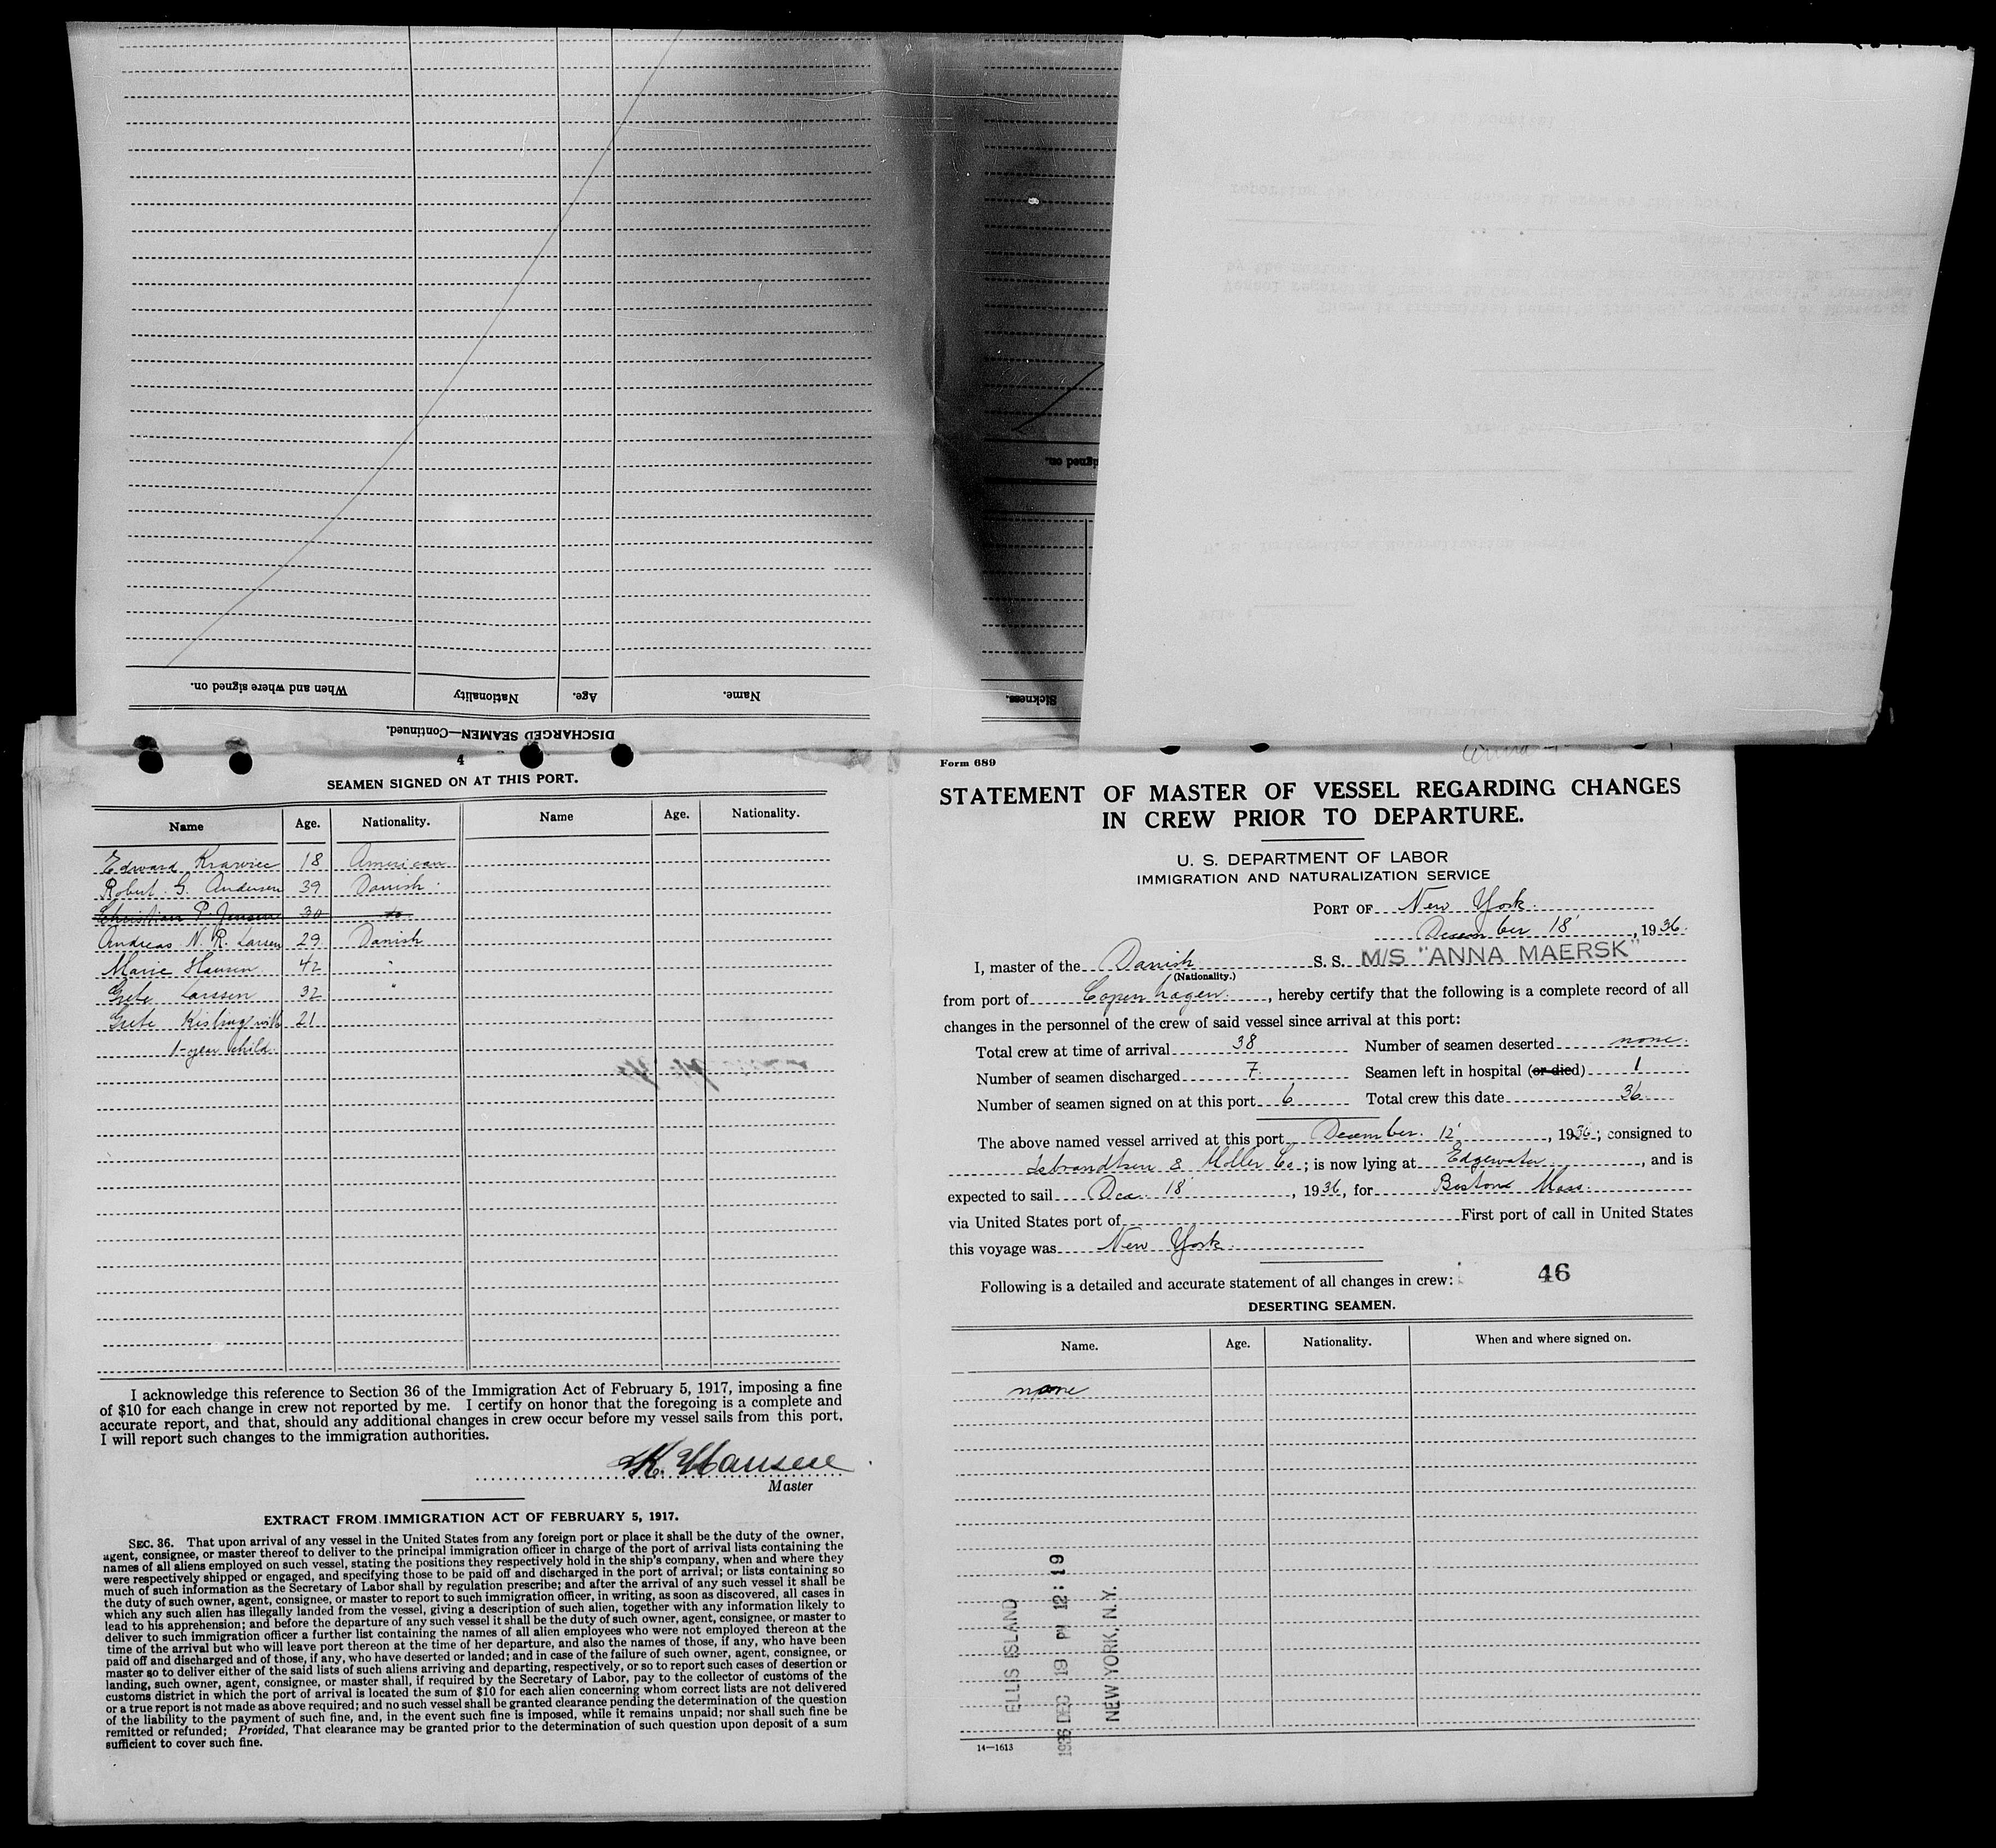 When and where signed on.
Nationality
Age.
Name.
DISCHARGED SEAMEN—Continued.
Sickness.
4
SEAMEN SIGNED ON AT THIS PORT.
Name Age. Nationality. Name Age. Nationality.
Edward Krawiec 18 American
Robert G. Andersen 39 Danish
Christian P. Jensen 30 do
Andreas N. R. Larsen 29 Danish
Marie Hansen 42 "
Grete Larssen 32 "
Grete Kisling with 21
1-year child.
I acknowledge this reference to Section 36 of the Immigration Act of February 5, 1917, imposing a fine
of $10 for each change in crew not reported by me. I certify on honor that the foregoing is a complete and
accurate report, and that, should any additional changes in crew occur before my vessel sails from this port,
I will report such changes to the immigration authorities.
K. Hansen
Master
EXTRACT FROM IMMIGRATION ACT OF FEBRUARY 5, 1917.
SEC. 36. That upon arrival of any vessel in the United States from any foreign port or place it shall be the duty of the owner,
agent, consignee, or master thereof to deliver to the principal immigration officer in charge of the port of arrival lists containing the
names of all aliens employed on such vessel, stating the positions they respectively hold in the ship's company, when and where they
were respectively shipped or engaged, and specifying those to be paid off and discharged in the port of arrival; or lists containing so
much of such information as the Secretary of Labor shall by regulation prescribe; and after the arrival of any such vessel it shall be
the duty of such owner, agent, consignee, or master to report to such immigration officer, in writing, as soon as discovered, all cases in
which any such alien has illegally landed from the vessel, giving a description of such alien, together with any information likely to
lead to his apprehension; and before the departure of any such vessel it shall be the duty of such owner, agent, consignee, or master to
deliver to such immigration officer a further list containing the names of all alien employees who were not employed thereon at the
time of the arrival but who will leave port thereon at the time of her departure, and also the names of those, if any, who have been
paid off and discharged and of those, if any, who have deserted or landed; and in case of the failure of such owner, agent, consignee, or
master so to deliver either of the said lists of such aliens arriving and departing, respectively, or so to report such cases of desertion or
landing, such owner, agent, consignee, or master shall, if required by the Secretary of Labor, pay to the collector of customs of the
customs district in which the port of arrival is located the sum of $10 for each alien concerning whom correct lists are not delivered
or a true report is not made as above required; and no such vessel shall be granted clearance pending the determination of the question
of the liability to the payment of such fine, and, in the event such fine is imposed, while it remains unpaid; nor shall such fine be
remitted or refunded; Provided, That clearance may be granted prior to the determination of such question upon deposit of a sum
sufficient to cover such fine.
Form 689
STATEMENT OF MASTER OF VESSEL REGARDING CHANGES
IN CREW PRIOR TO DEPARTURE.
U. S. DEPARTMENT OF LABOR
IMMIGRATION AND NATURALIZATION SERVICE
PORT OF New York.
December 18', 1936.
I, master of the Danish S. S. M/S "ANNA MAERSK"
(Nationality.)
from port of Copenhagen, hereby certify that the following is a complete record of all
changes in the personnel of the crew of said vessel since arrival at this port:
Total crew at time of arrival 38 Number of seamen deserted none.
Number of seamen discharged 7. Seamen left in hospital (or died) 1
Number of seamen signed on at this port 6 Total crew this date 36
The above named vessel arrived at this port December. 12', 1936; consigned to
Isbrandtsen & Moller Co; is now lying at Edgewater, and is
expected to sail Dec. 18', 1936, for Boston Mass.
via United States port of First port of call in United States
this voyage was New York.
Following is a detailed and accurate statement of all changes in crew:
46
DESERTING SEAMEN.
Name. Age. Nationality. When and where signed on.
none
ELLIS ISLAND
1936 DEC 19 PM 12:19
NEW YORK, N.Y.
14—1613